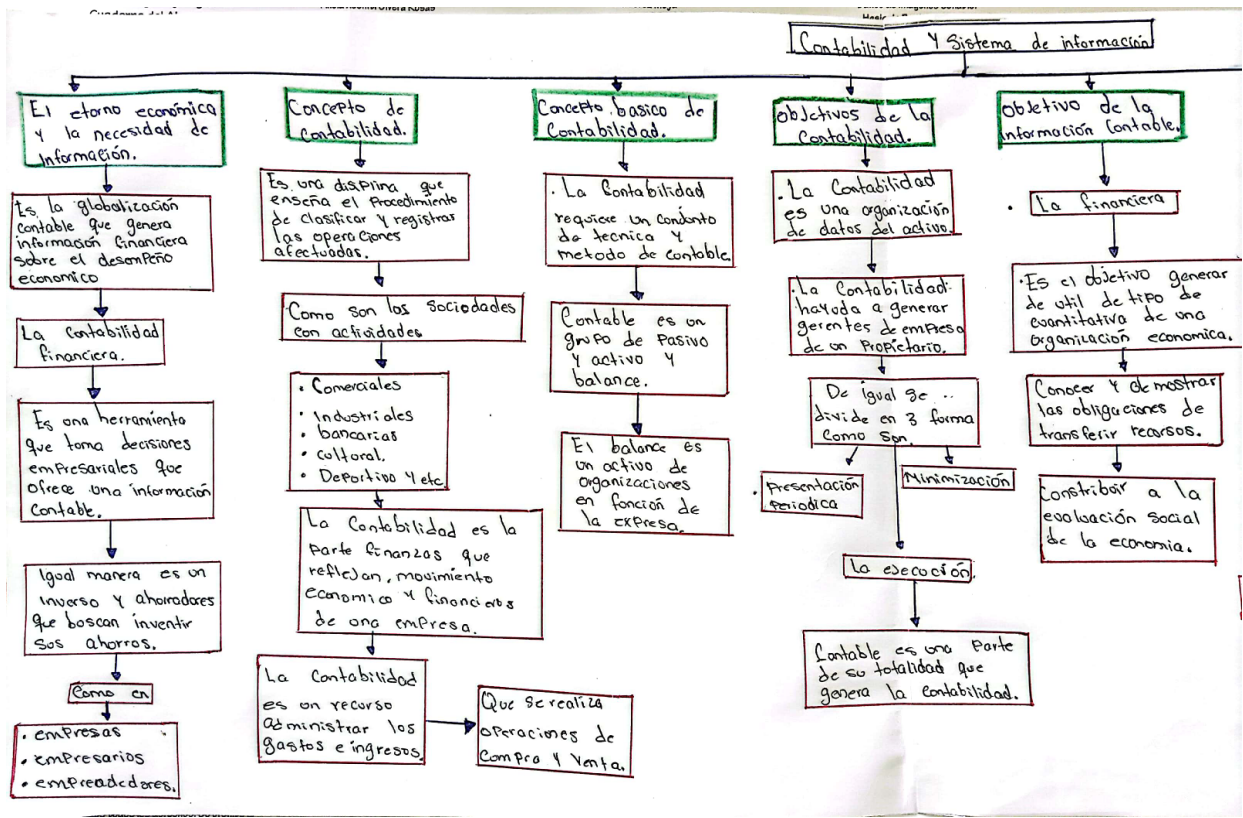 Contabilidad Y Sistema de información
El etorno económica
y la necesidad de
información.
Es la globalización
contable que genera
información financiera
sobre el desempeño
economico
La Contabilidad
financiera.
Es una herramienta
que toma decisiones
empresariales que
ofrece una información
Contable.
Igual manera es un
inverso y ahorradores
que boscan inventir
sus ahorros.
Como en
• empresas
• empresarios
• empreadedores.
Concepto de
Contabilidad.
Es una disprina que
enseña el Procedimiento
de clasificar y registrar
las operaciones
afectuadas.
Como son los Sociedades
con actividades
• Comerciales
• Industriales
• bancarias
• cultoral.
• Deportivo y etc
La Contabilidad es la
Parte finanzas que
reflejan, movimiento
economico y financieros
de una empresa.
La Contabilidad
es un recurso
administrar los
gastos e ingresos.
Que Se realiza
operaciones de
Compra y Venta.
Concepto basico de
Contabilidad.
. La Contabilidad
requiere un condonto
de tecnica y
metodo de contable.
Contable es un
grupo de Pasivo
y activo y
balance.
El balance es
un activo de
organizaciones
en fonción de
la expresa.
Objetivos de la
Contabilidad.
. La Contabilidad
es una organización
de datos del activo.
. La Contabilidad
hayuda a generar
gerentes de empresa
de un Propietario.
De igual Se ..
divide en 3 forma
como son.
. Presentación
Periodica
Minimización
La esecoción.
Contable es una Parte
de su totalidad que
genera la contabilidad.
Objetivo de la
información Contable.
. La financiera
. Es el objetivo generar
de util de tipo de
cuantitativa de una
organización economica.
Conocer y demostrar
las obligaciones de
transferir recursos.
Constriboir a la
evaluación social
de la economia.